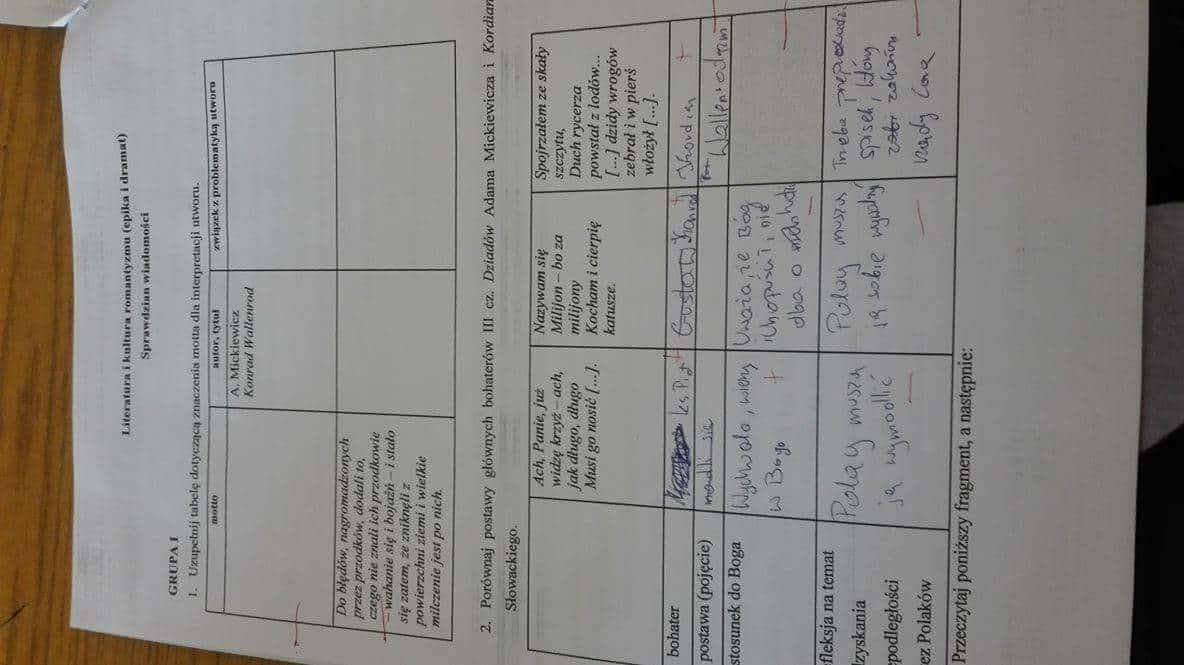 Literatura i kultura romantyzmu (epika i dramat)
Sprawdzian wiadomości
GRUPA I
1. Uzupełnij tabelę dotyczącą znaczenia motta dla interpretacji utworu.
motto
autor, tytuł
związek z problematyką utworu
A. Mickiewicz
Konrad Wallenrod
Do błędów, nagromadzonych
przez przodków, dodali to,
czego nie znali ich przodkowie
– wahanie się i bojaźń – i stało
się zatem, że zniknęli z
powierzchni ziemi i wielkie
milczenie jest po nich.
2. Porównaj postawy głównych bohaterów III cz. Dziadów Adama Mickiewicza i Kordian
Słowackiego.
Ach, Panie, już
widzę krzyż – ach,
jak długo, długo
Musi go nosić [...].
Nazywam się
Milijon – bo za
milijony
Kocham i cierpię
katusze.
Spojrzałem ze skały
szczytu,
Duch rycerza
powstał z lodów...
[...] dzidy wrogów
zebrał i w pierś
włożył [...].
bohater
ks. Piotr
Gustaw Konrad
Kordian
postawa (pojęcie)
modli się
Wallenrodyzm
stosunek do Boga
Wychwala, wierzy
w Boga
Uważa, że Bóg
ich opuścił, nie
dba o ludzi
efleksja na temat
zyskania
epodległości
ez Polaków
Polacy muszą
ją wymodlić
Polacy muszą
ją sobie
Trzeba
spisek, który
zakończy
rządy Cara
Przeczytaj poniższy fragment, a następnie: